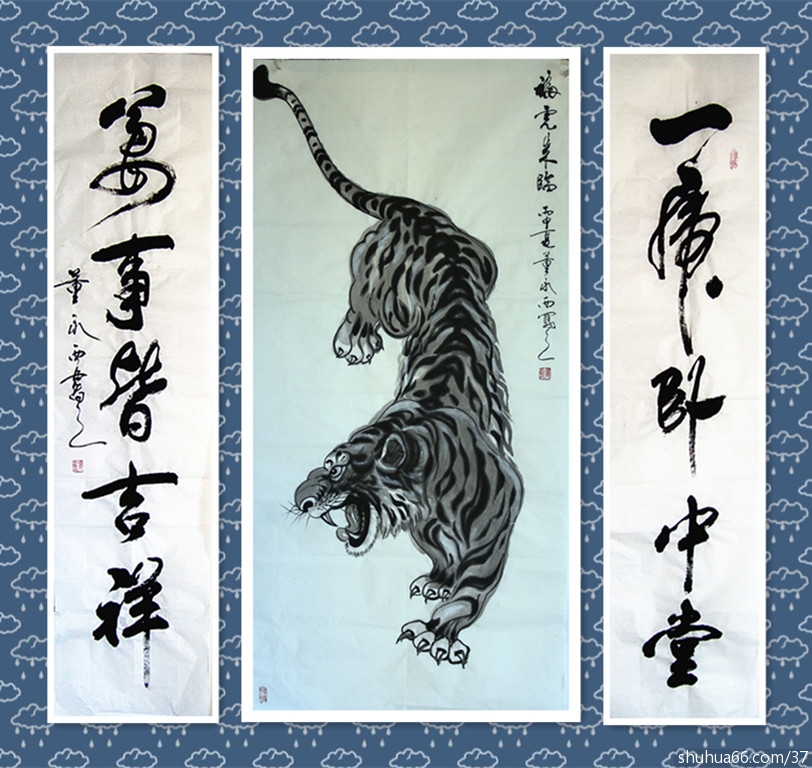 一虎卧中堂
福虎来临
丙申夏董永西寫之
萬事皆吉祥
董永西書之
shuhua66.com/37